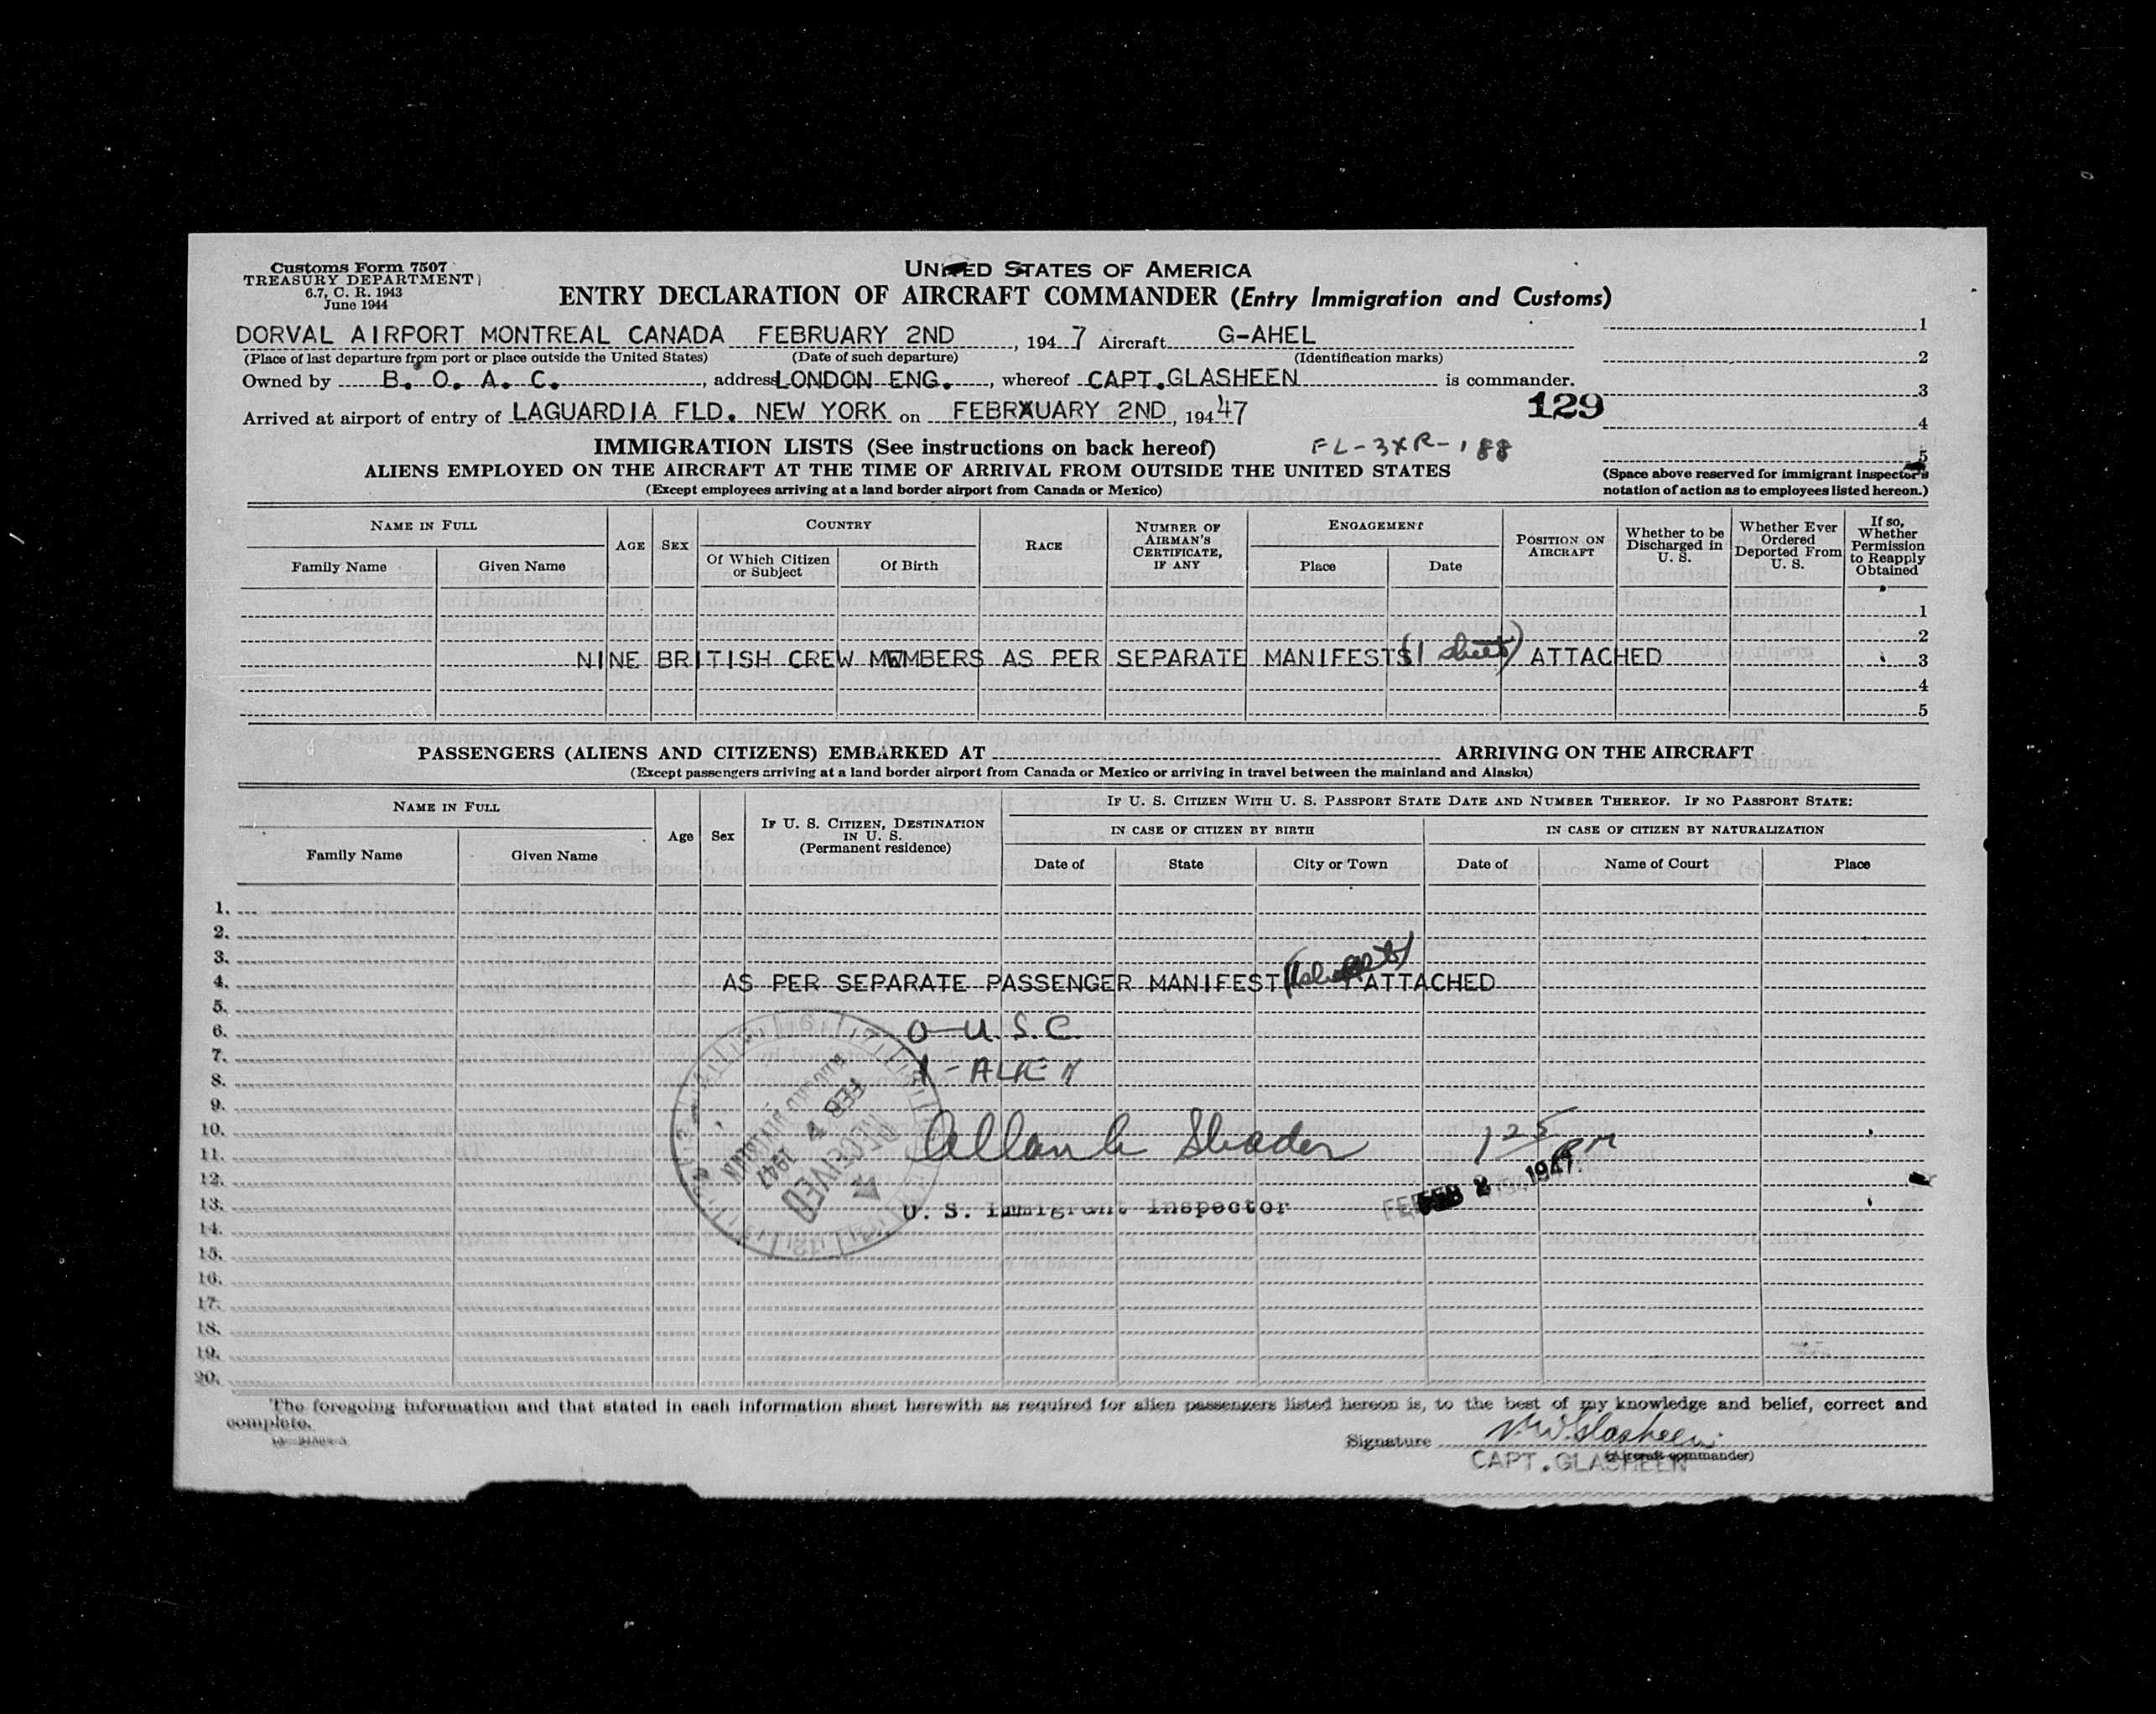 Customs Form 7507
TREASURY DEPARTMENT
6.7, C. R. 1943
June 1944
UNITED STATES OF AMERICA
ENTRY DECLARATION OF AIRCRAFT COMMANDER (Entry Immigration and Customs)
DORVAL AIRPORT MONTREAL CANADA FEBRUARY 2ND, 1947 Aircraft G-AHEL
(Place of last departure from port or place outside the United States) (Date of such departure) (Identification marks)
Owned by B. O. A. C., address LONDON ENG., whereof CAPT.GLASHEEN is commander.
Arrived at airport of entry of LAGUARDIA FLD. NEW YORK on FEBRXUARY 2ND, 19447
129
1
2
3
4
5
IMMIGRATION LISTS (See instructions on back hereof) FL-3XR-188
ALIENS EMPLOYED ON THE AIRCRAFT AT THE TIME OF ARRIVAL FROM OUTSIDE THE UNITED STATES
(Except employees arriving at a land border airport from Canada or Mexico)
(Space above reserved for immigrant inspector's
notation of action as to employees listed hereon.)
NAME IN FULL
Family Name Given Name
AGE SEX
COUNTRY
Of Which Citizen or Subject Of Birth
RACE
NUMBER OF AIRMAN'S CERTIFICATE, IF ANY
ENGAGEMENT
Place Date
POSITION ON AIRCRAFT
Whether to be Discharged in U. S.
Whether Ever Ordered Deported From U. S.
If so, Whether Permission to Reapply Obtained
1
2
NINE BRITISH CREW MEMBERS AS PER SEPARATE MANIFESTS (1 sheet) ATTACHED 3
4
5
PASSENGERS (ALIENS AND CITIZENS) EMBARKED AT ARRIVING ON THE AIRCRAFT
(Except passengers arriving at a land border airport from Canada or Mexico or arriving in travel between the mainland and Alaska)
NAME IN FULL
Family Name Given Name
Age Sex
IF U. S. CITIZEN, DESTINATION IN U. S. (Permanent residence)
IF U. S. CITIZEN WITH U. S. PASSPORT STATE DATE AND NUMBER THEREOF. IF NO PASSPORT STATE:
IN CASE OF CITIZEN BY BIRTH IN CASE OF CITIZEN BY NATURALIZATION
Date of State City or Town Date of Name of Court Place
1.
2.
3.
4. AS PER SEPARATE PASSENGER MANIFEST ATTACHED
5.
6. O-U.S.C.
7.
8. -ALIEN
9.
10.
11. Shader 125 PM
12. 1947
13. U. S. Immigrant Inspector FEB
14.
15.
16.
17.
18.
19.
20.
RECEIVED
FEB 4 1947
The foregoing information and that stated in each information sheet herewith as required for alien passengers listed hereon is, to the best of my knowledge and belief, correct and
complete.
Signature V.W. Glasheen
(Aircraft commander)
CAPT.GLASHEEN